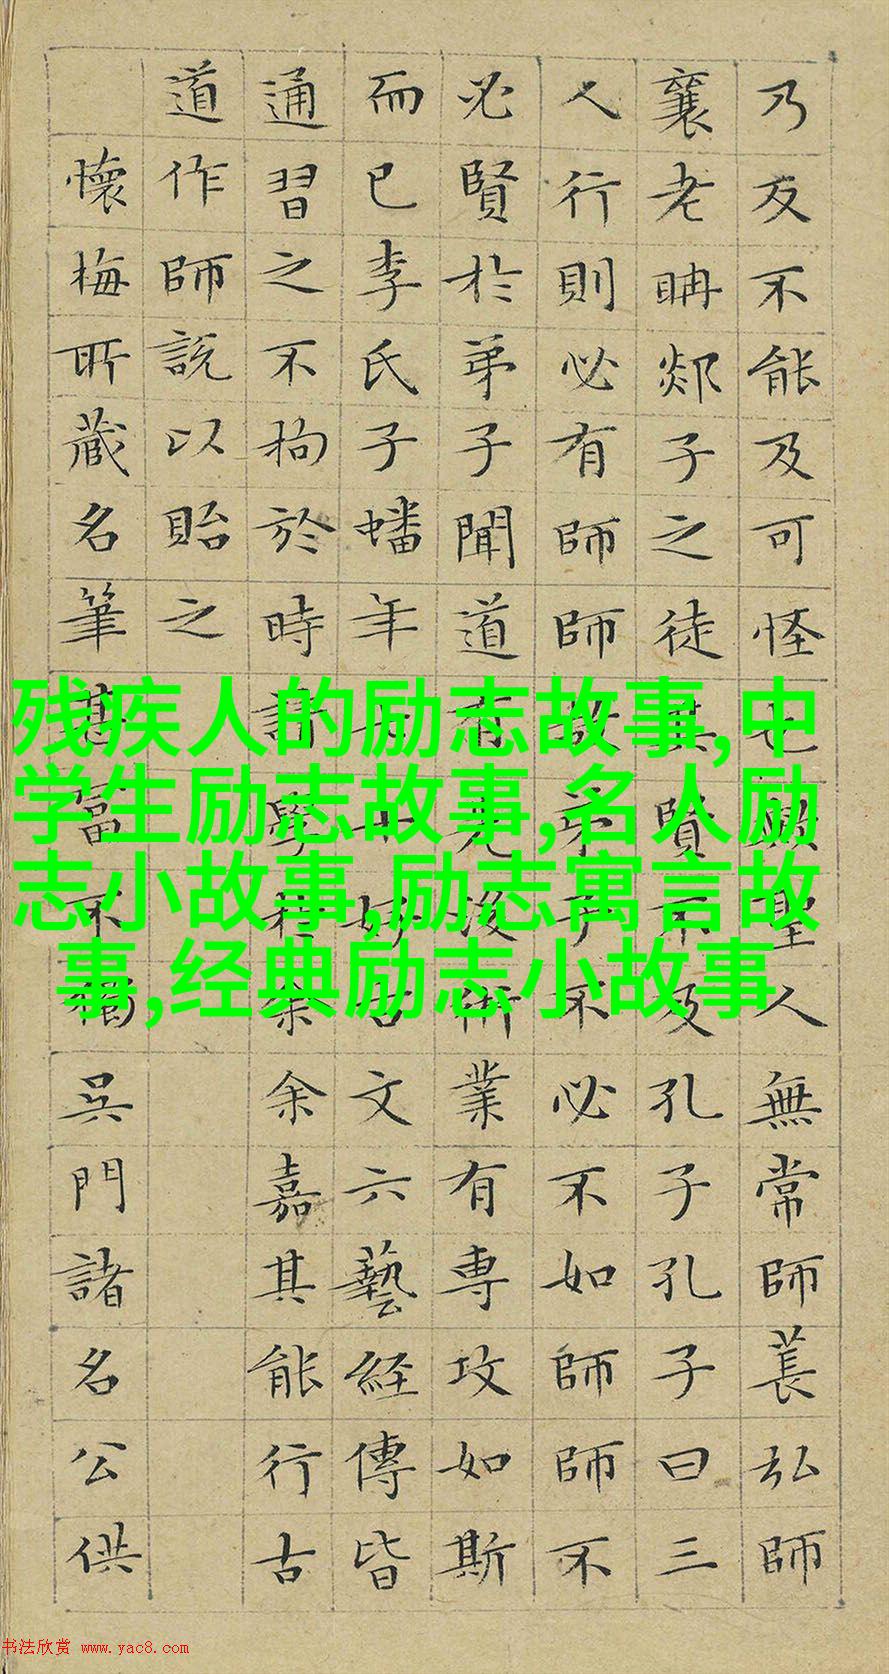 乃反不能及可怪也歟聖人無常師萇弘師
襄老聃郯子之徒其賢不及孔子孔子曰三
人行則必有師師故弟子不必不如師師不
必賢於弟子聞道有先後術業有專攻如斯
而已李氏子蟠年十七好古文六藝經傳皆
通習之不拘於時請學於余余嘉其能行古
道作師說以貽之
懷梅所藏名筆甚富不獨吳門諸名公供
残疾人的励志故事,中
学生励志故事,名人励
志小故事,励志寓言故
事,经典励志小故事
书法欣赏 www.yac8.com